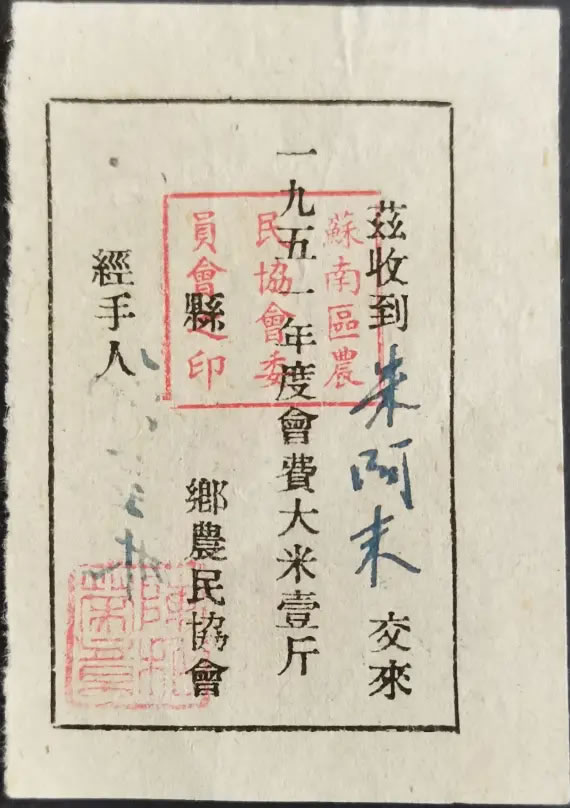 茲收到朱阿末交來
一九五一年度會費大米壹斤
縣 鄉農民協會
經手人
蘇南區農
民協會委
員會之印